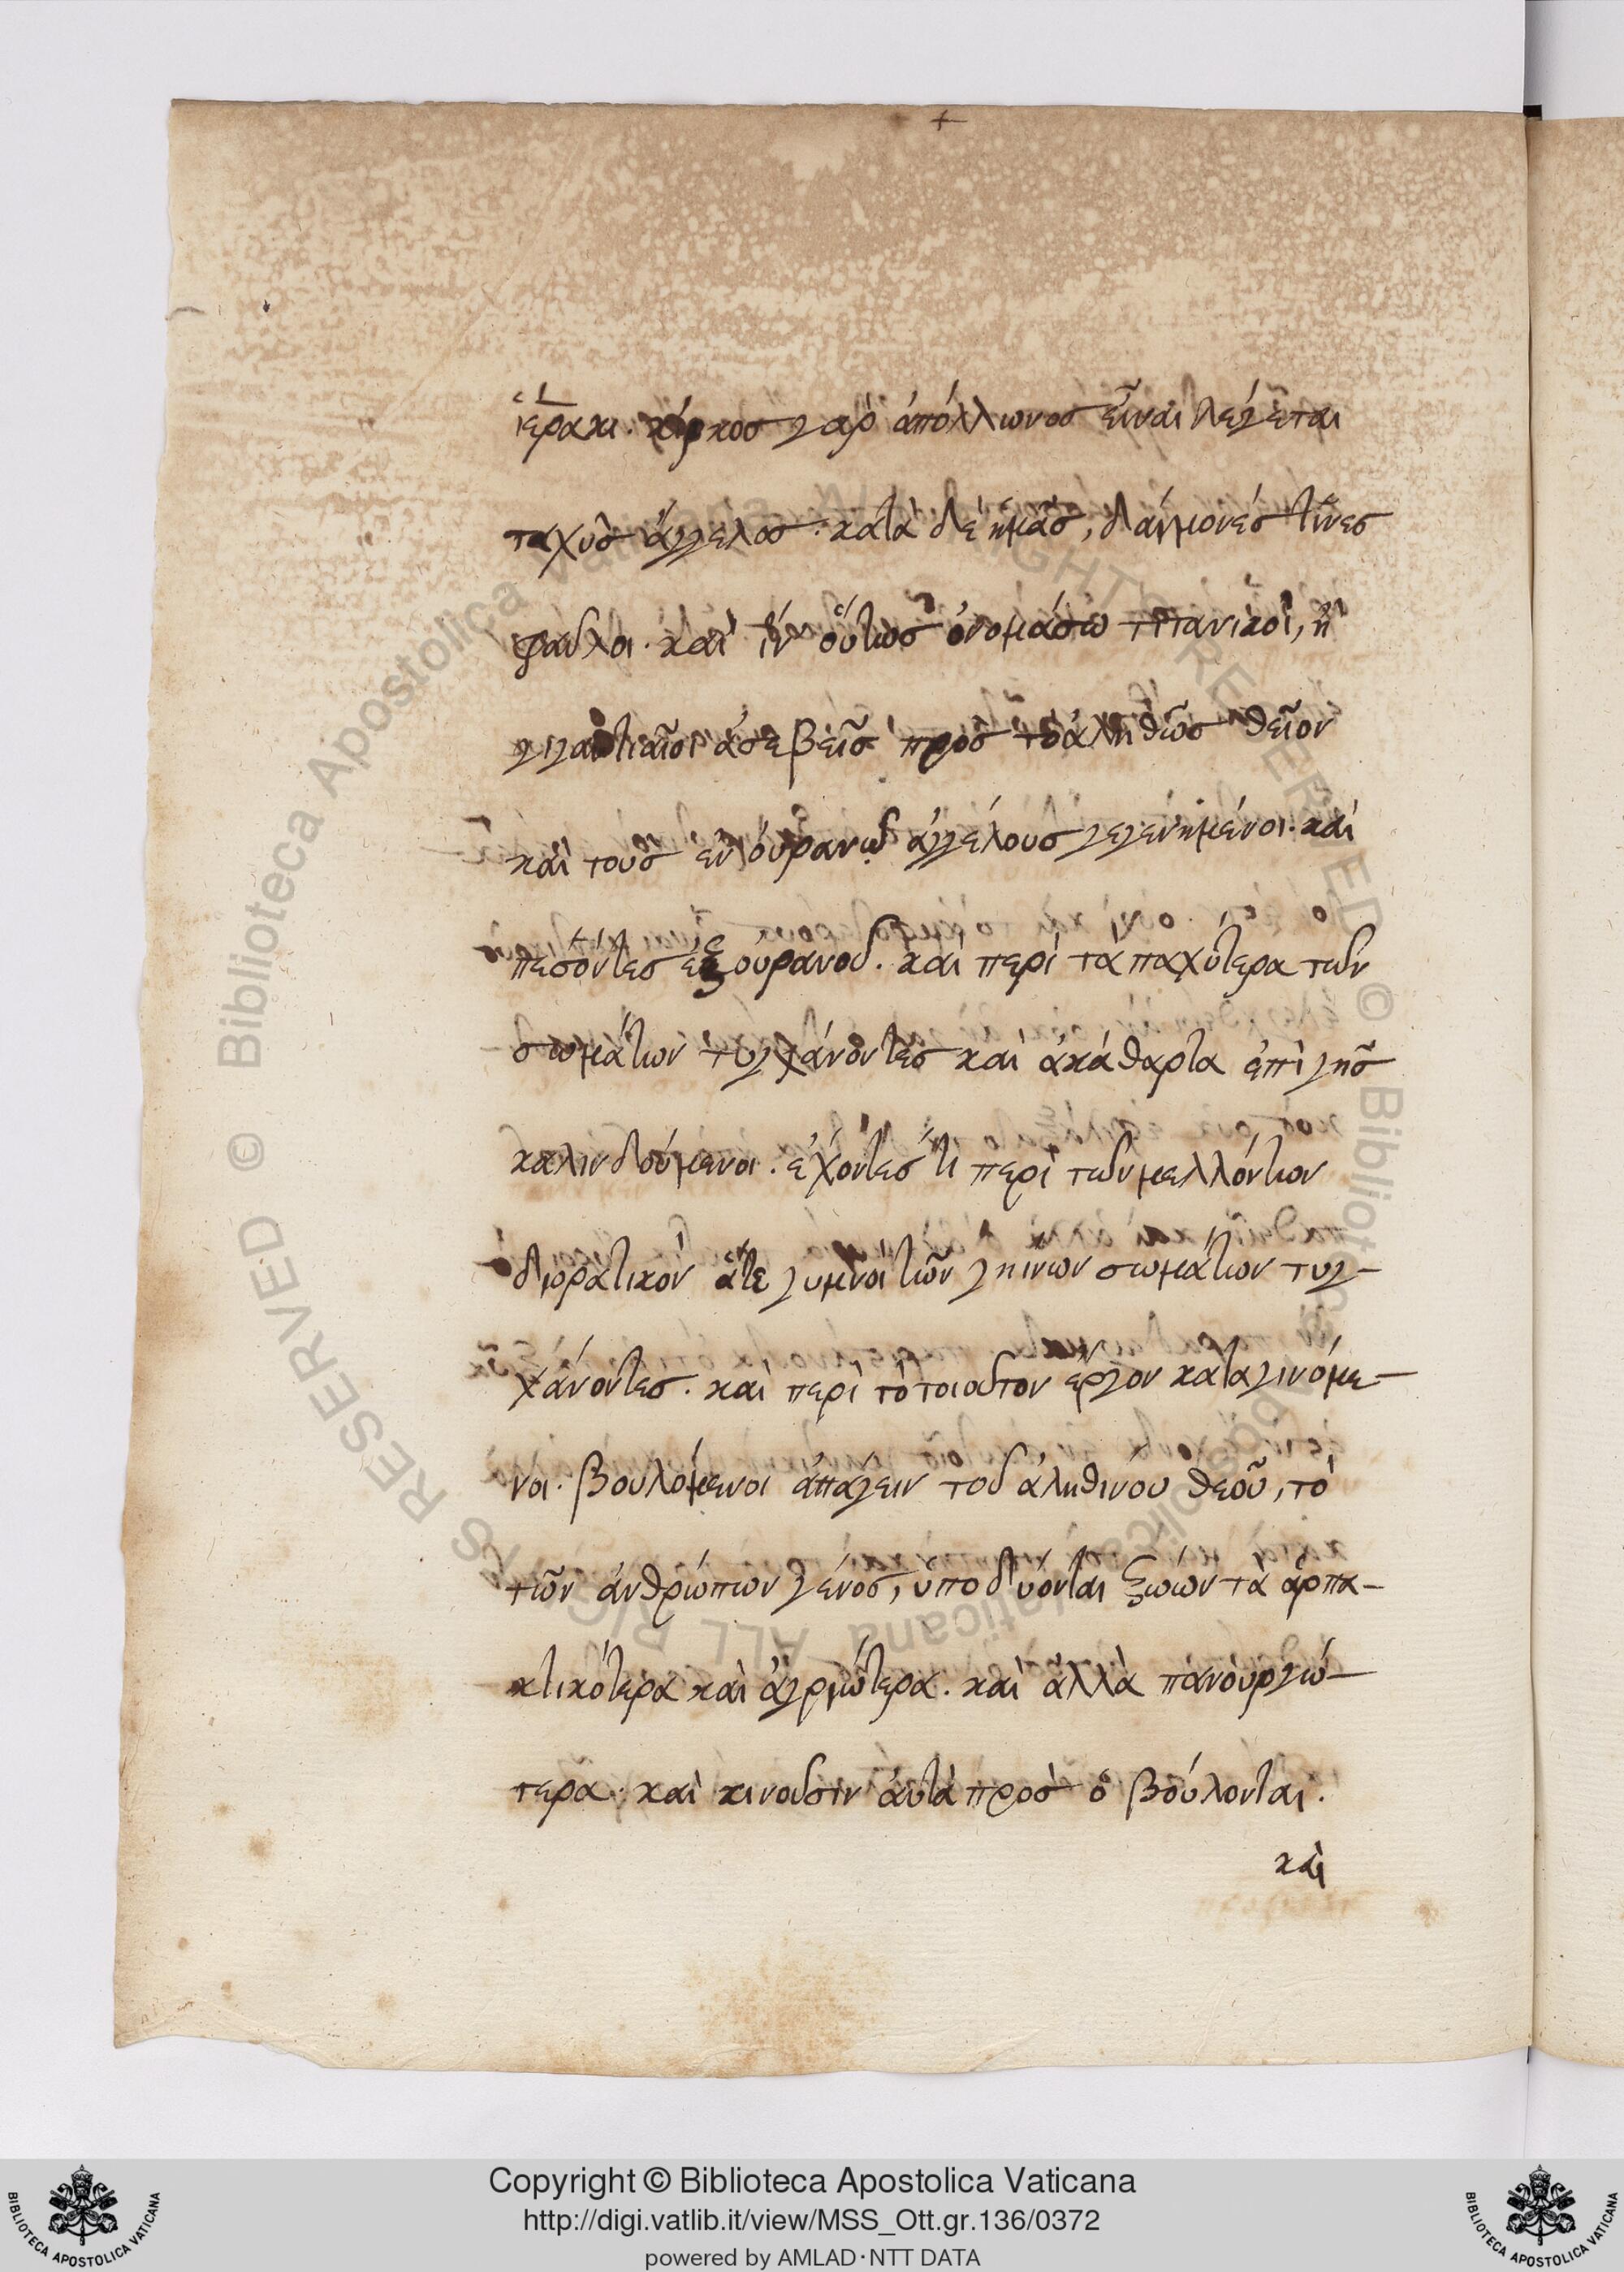 ἱέρακι. κίρκος γὰρ ἀπόλλωνος εἶναι λέγεται
ταχὺς ἄγγελος. κατὰ δὲ ἡμᾶς, δαίμονές τινες
φαῦλοι. καὶ ἵν' οὕτως ὀνομάσω τιτανικοὶ, ἢ
γιγάντιοι ἀσεβεῖς πρὸς τὸ ἀληθῶς θεῖον
καὶ τοὺς ἐν οὐρανῷ ἀγγέλους γεγενημένοι. καὶ
πεσόντες ἐξ οὐρανοῦ. καὶ περὶ τὰ παχύτερα τῶν
σωμάτων τυγχάνοντες καὶ ἀκάθαρτα ἐπὶ γῆς
καλινδούμενοι. ἔχοντές τι περὶ τῶν μελλόντων
διορατικὸν ἅτε γυμνοὶ τῶν γηίνων σωμάτων τυγ-
χάνοντες. καὶ περὶ τὸ τοιοῦτον ἔργον καταγινόμε-
νοι. βουλόμενοι ἀπάγειν τοῦ ἀληθινοῦ θεοῦ, τὸ
τῶν ἀνθρώπων γένος, ὑποδύονται ζώων τὰ ἁρπα-
κτικώτερα καὶ ἀγριώτερα. καὶ ἄλλα πανουργό-
τερα. καὶ κινοῦσιν αὐτὰ πρὸς ὃ βούλονται.
καὶ
© Biblioteca Apostolica Vaticana ALL RIGHTS RESERVED
Copyright © Biblioteca Apostolica Vaticana
http://digi.vatlib.it/view/MSS_Ott.gr.136/0372
powered by AMLAD·NTT DATA
BIBLIOTECA APOSTOLICA VATICANA
BIBLIOTECA APOSTOLICA VATICANA